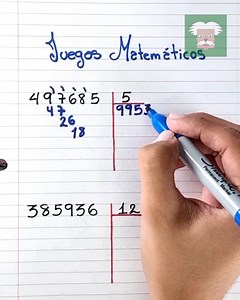 Juegos Matemáticos
497685 5
47 9953
26
18
385936 12